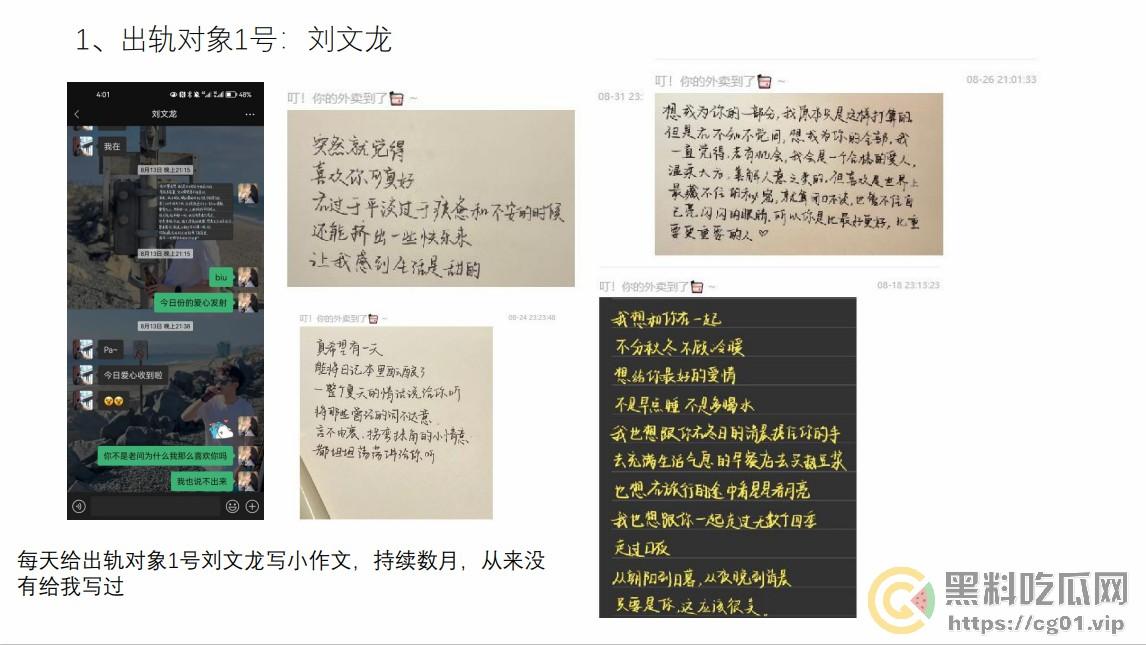 1、出轨对象1号：刘文龙
4:01
48%
刘文龙
我在
8月13日 晚上21:15
8月13日 晚上21:15
biu
今日份的爱心发射
8月13日 晚上21:38
Pa~
今日爱心收到啦
你不是老问为什么我那么喜欢你吗
我也说不出来
叮！你的外卖到了 ~
08-31 23:
突然就觉得
喜欢你可真好
在过于平淡过于疲惫和不安的时候
还能挤出一些快乐来
让我感到生活是甜的
叮！你的外卖到了 ~
08-24 23:23:48
真希望有一天
能将日记本里酝酿了
一整个夏天的情话说给你听
将那些曾经的词不达意
言不由衷，拐弯抹角的小情愫
都坦坦荡荡讲给你听
叮！你的外卖到了 ~
08-26 21:01:33
想成为你的一部分，我原本只是这样打算的
但是在不知不觉间，想成为你的全部，我
一直觉得，若有机会，我会是一个合格的爱人，
温柔大方，善解人意之类的，但喜欢是世界上
最藏不住的秘密，就算闭口不谈，也管不住自
己亮闪闪的眼睛，所以你是比最好更好，比重
要更重要的人♡
叮！你的外卖到了 ~
08-18 23:13:23
我想和你在一起
不分秋冬 不顾冷暖
想给你最好的爱情
不是早点睡 不是多喝水
我也想跟你在冬日的清晨搂住你的手
去充满生活气息的早餐店去买截豆浆
也想在旅行的途中看星星看月亮
我也想跟你一起走过无数个四季
走过日夜
从朝阳到日暮，从夜晚到清晨
只要是你，这应该很美。
每天给出轨对象1号刘文龙写小作文，持续数月，从来没
有给我写过
黑料吃瓜网
https://cg01.vip